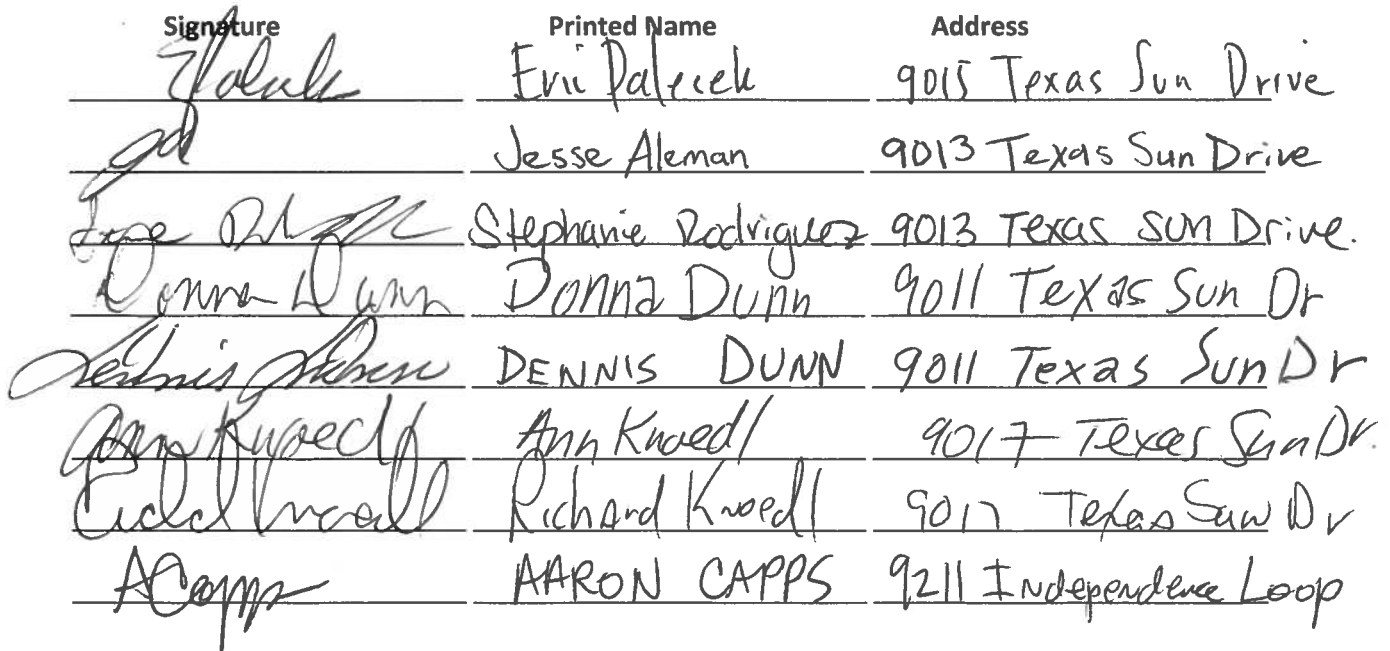 Signature Printed Name Address
Eric Palecek 9015 Texas Sun Drive
Jesse Aleman 9013 Texas Sun Drive
Stephanie Rodriguez 9013 Texas Sun Drive.
Donna Dunn Donna Dunn 9011 Texas Sun Dr
Dennis Dunn DENNIS DUNN 9011 Texas Sun Dr
Ann Knoedl Ann Knoedl 9017 Texas Sun Dr.
Richard Knoedl 9017 Texas Sun Dr
ACapps AARON CAPPS 9211 Independence Loop